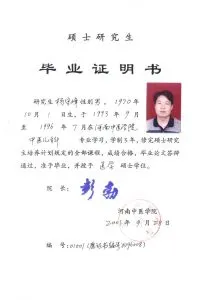 硕士研究生
毕业证明书
研究生 性别男，1970年
10月1日生，于1993年9月
至1996年7月在河南中医学院
中医儿科 专业学习，学制3年，修完硕士研究
生培养计划规定的全部课程，成绩合格，毕业论文答辩
通过，准予毕业，并授予 医学 硕士学位。
院长：彭勃
河南中医学院
9月28日
编号：